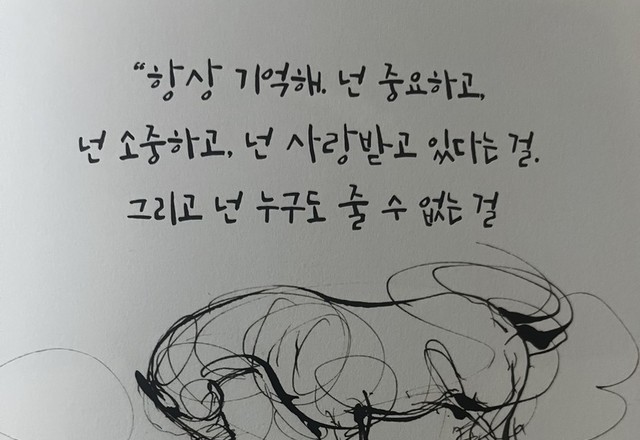 “항상 기억해. 넌 중요하고,
넌 소중하고, 넌 사랑받고 있다는 걸.
그리고 넌 누구도 줄 수 없는 걸